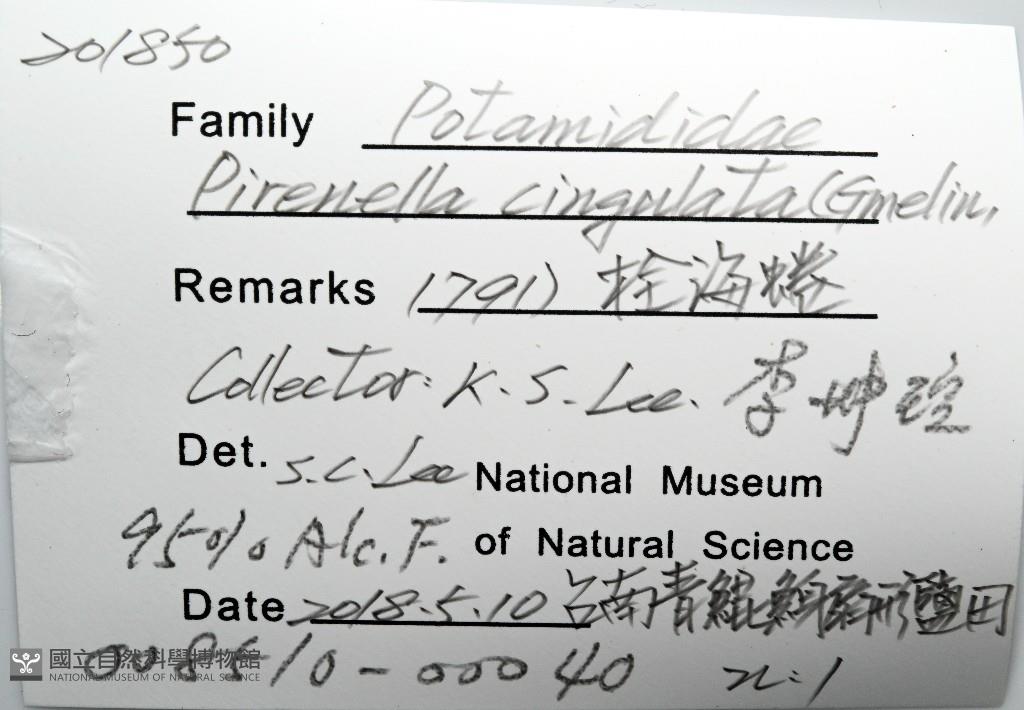 201850
Family Potamididae
Pirenella cingulata (Gmelin,
Remarks 1791) 栓海蜷
Collector: K. S. Lee. 李坤瑄
Det. S.C. Lee National Museum
95% Alc. F. of Natural Science
Date 2018.5.10 台南青鯤鯓扇形鹽田
-10-00040 n:1
國立自然科學博物館
NATIONAL MUSEUM OF NATURAL SCIENCE